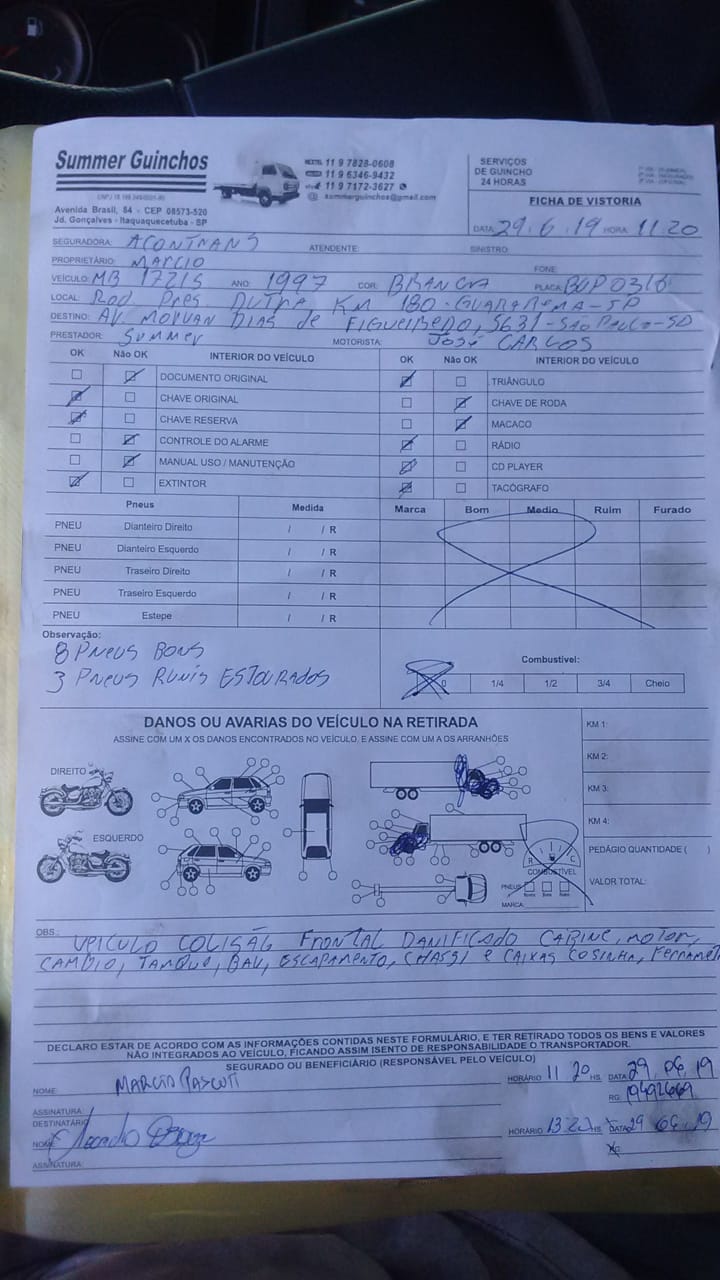 Summer Guinchos
Avenida Brasil, 84 - CEP 08573-520
Jd. Gonçalves - Itaquaquecetuba - SP
11 9 7828-0608
11 9 6346-9432
11 9 7172-3627
summerguinchos@gmail.com
SERVIÇOS
DE GUINCHO
24 HORAS
FICHA DE VISTORIA
DATA: 29.6.19 HORA: 11:20
SEGURADORA: ACONTRANS ATENDENTE: SINISTRO:
PROPRIETÁRIO: MARCIO FONE:
VEÍCULO: MB 1721S ANO: 1997 COR: BRANCA PLACA: BUP0316
LOCAL: Rod Pres DUTRA, KM 180 - GUARAREMA-SP
DESTINO: AV MORVAN DIAS de FIGUEIREDO, 5631 - São Paulo-SP
PRESTADOR: Summer MOTORISTA: José CARLOS
OK Não OK INTERIOR DO VEÍCULO OK Não OK INTERIOR DO VEÍCULO
DOCUMENTO ORIGINAL TRIÂNGULO
CHAVE ORIGINAL CHAVE DE RODA
CHAVE RESERVA MACACO
CONTROLE DO ALARME RÁDIO
MANUAL USO / MANUTENÇÃO CD PLAYER
EXTINTOR TACÓGRAFO
Pneus Medida Marca Bom Medio Ruim Furado
PNEU Dianteiro Direito / / R
PNEU Dianteiro Esquerdo / / R
PNEU Traseiro Direito / / R
PNEU Traseiro Esquerdo / / R
PNEU Estepe / / R
Observação:
8 PNEUS BONS
3 PNEUS RUNIS ESTOURADOS
Combustível:
0 1/4 1/2 3/4 Cheio
DANOS OU AVARIAS DO VEÍCULO NA RETIRADA
ASSINE COM UM X OS DANOS ENCONTRADOS NO VEÍCULO, E ASSINE COM UM A OS ARRANHÕES
DIREITO
ESQUERDO
R C
COMBUSTÍVEL
PNEUS
MARCA:
KM 1:
KM 2:
KM 3:
KM 4:
PEDÁGIO QUANTIDADE ( )
VALOR TOTAL:
OBS.: VEICULO COLISÃO FRONTAL DANIFICADO CABINE, MOTOR,
CAMBIO, TANQUE, BAU, ESCAPAMENTO, CHASSI e CAIXAS COSINHA,
DECLARO ESTAR DE ACORDO COM AS INFORMAÇÕES CONTIDAS NESTE FORMULÁRIO, E TER RETIRADO TODOS OS BENS E VALORES
NÃO INTEGRADOS AO VEÍCULO, FICANDO ASSIM ISENTO DE RESPONSABILIDADE O TRANSPORTADOR.
SEGURADO OU BENEFICIÁRIO (RESPONSÁVEL PELO VEÍCULO)
NOME: MARCIO HORÁRIO 11 20 HS. DATA 29.06.19
RG: 19492669
ASSINATURA:
DESTINATÁRIO
NOME HORÁRIO 13:20 HS DATA 29 06.19
ASSINATURA: